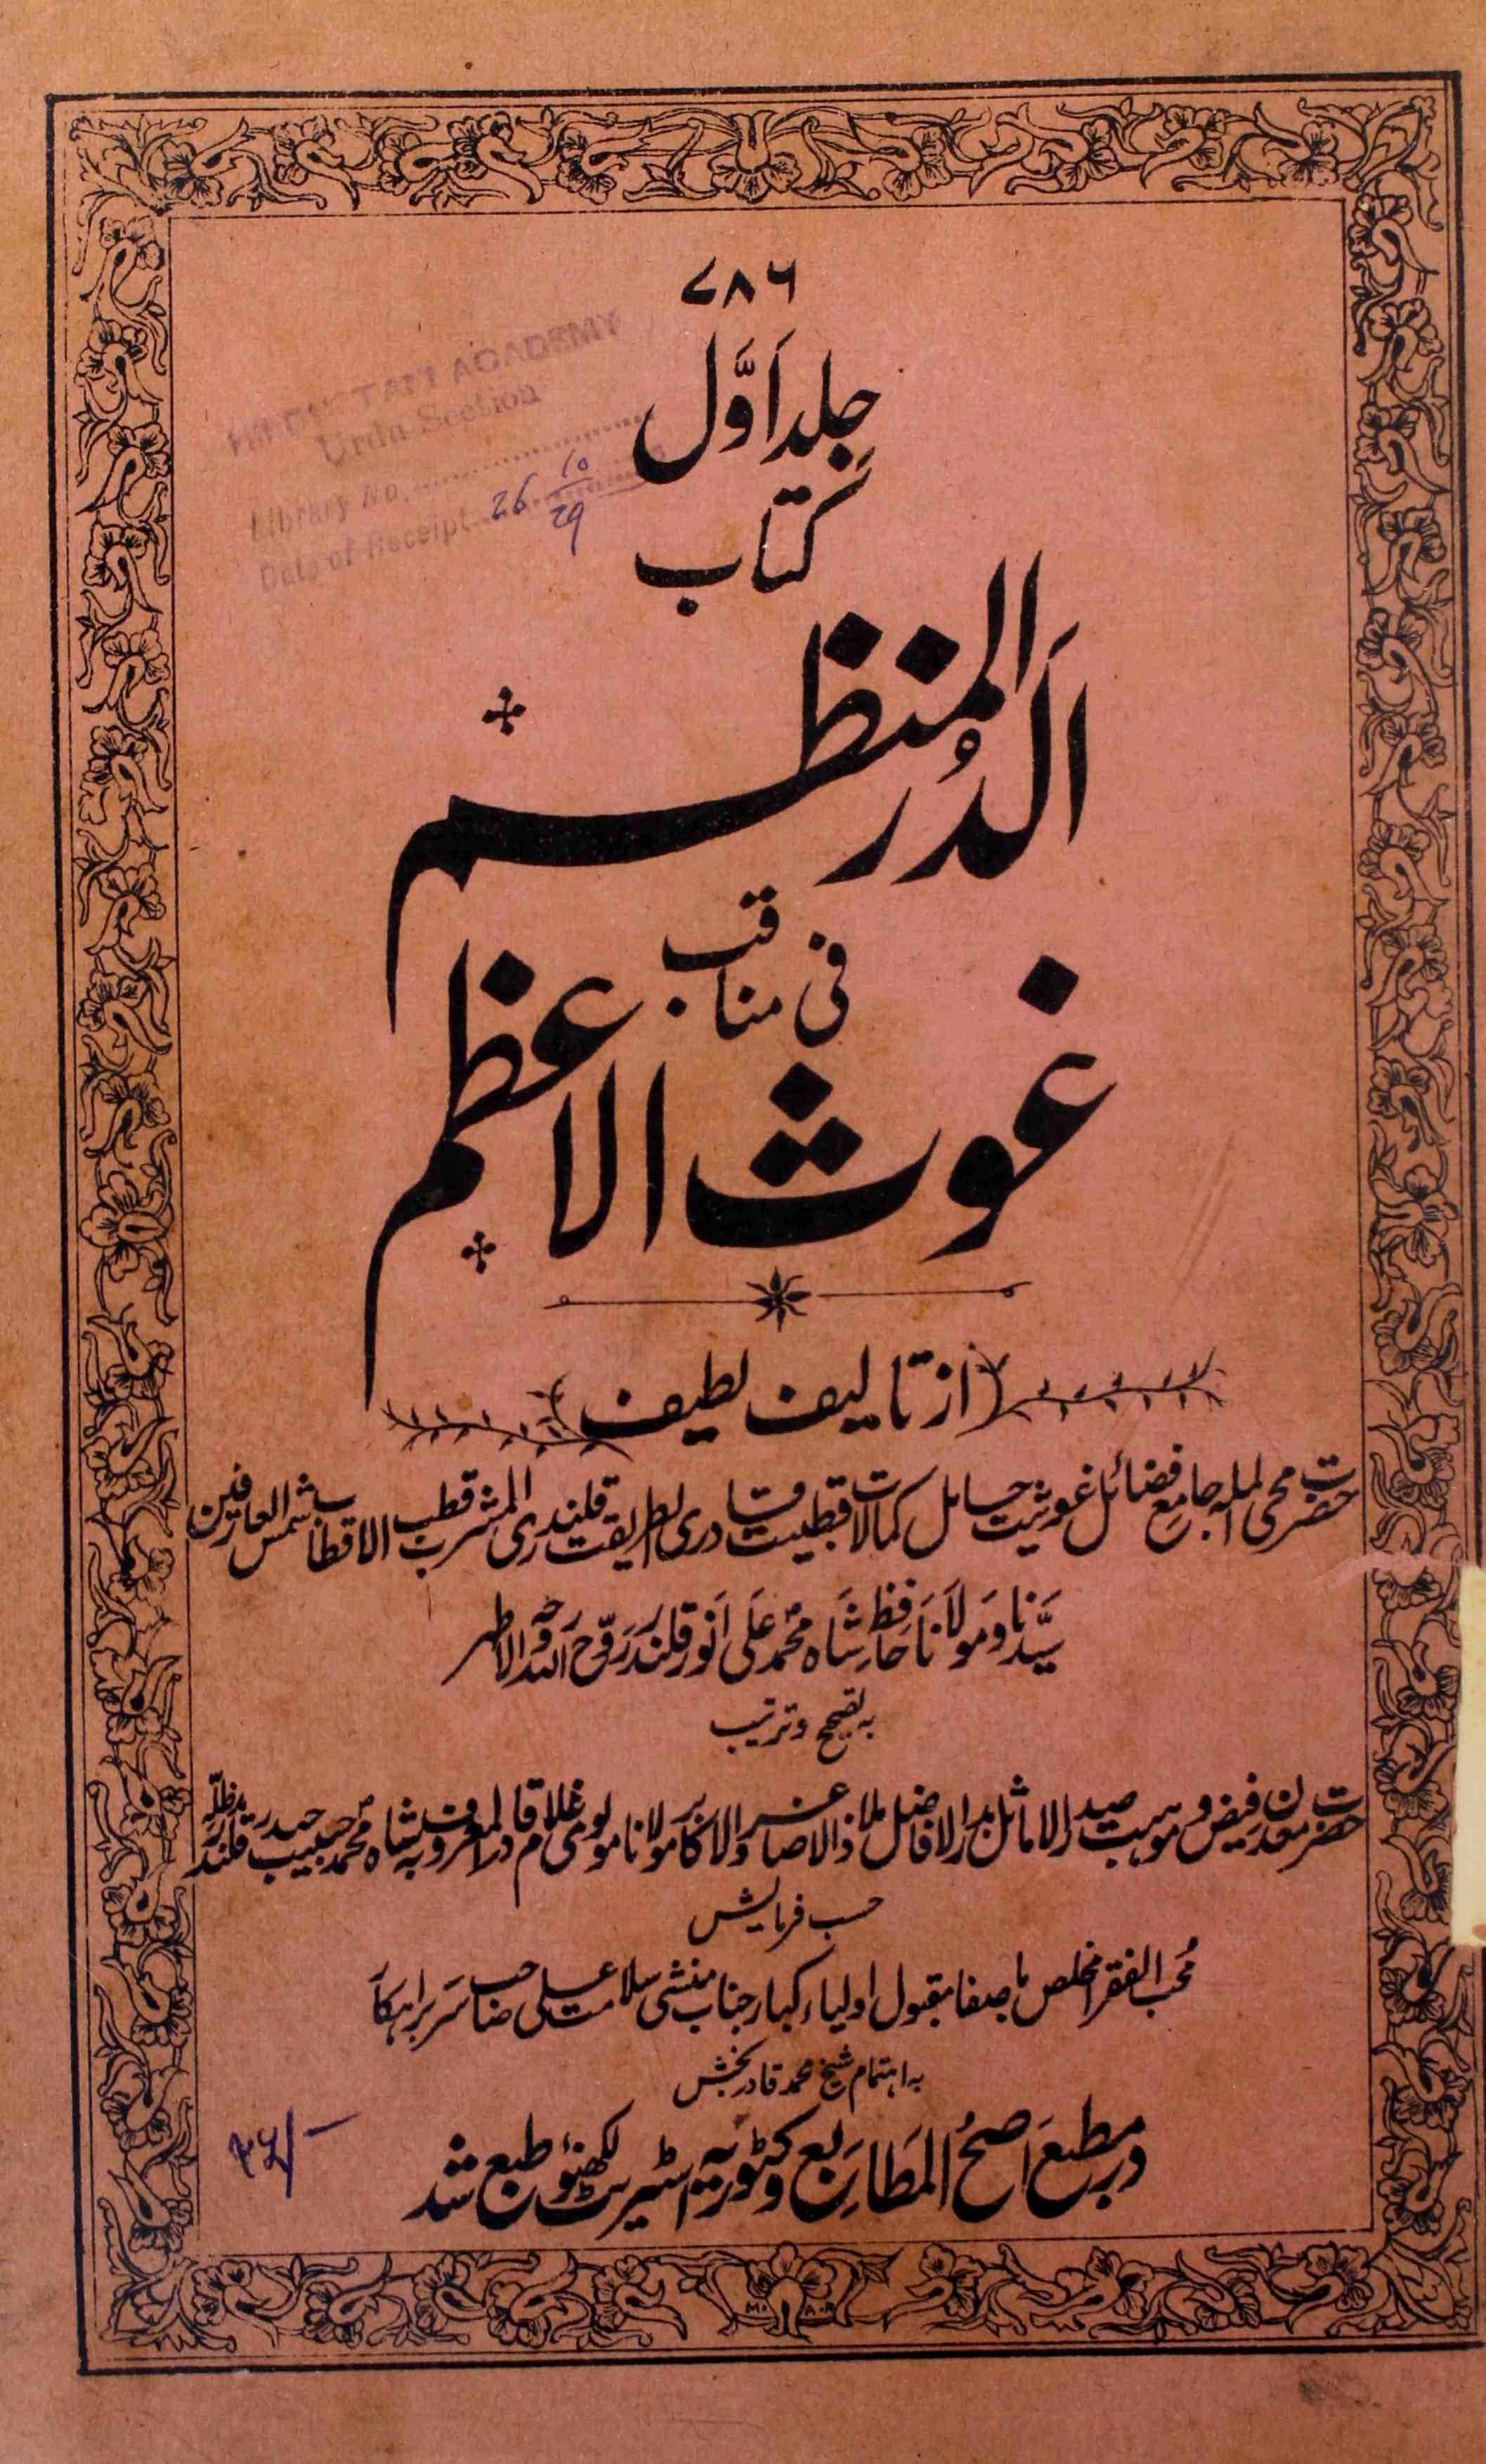 ۷۸۶
HINDUSTANI ACADEMY
Urdu Section
Library No.
Date of Receipt 26 10/29
جلد اَوَّل
کتاب
اَلدُّرُ المُنظَّم
فی مناقب
غوث الاعظم
(از تالیف لطیف)
حضرت محی الملہ جامع فضائل غوثیت حامل کمالات قطبیت قادری الطریقت قلندری المشرب قطب الاقطاب شمس العارفین
سیّدنا و مَولٰانا حافظ شاہ محمّد عَلی اَنوَر قلندر رَوّح اللہ روحَہ الاطہر
بہ تصحیح و ترتیب
حضرت معدن فیض و موہبت صدر الاماثل بدر الافاضل ملاذ الاصاغر والاکابر مولانا مولوی غلام قادر المعروف بہ شاہ محمد حبیب حیدر قلندر مدظلہ
حسب فرمایش
مُحب الفقرا مخلص باصفا مقبول اولیاء کبار جناب منشی سلامت علی صاحب سَربراہکار
بہ اہتمام شیخ محمد قادر بخش
در مطبع اَصحُ المَطابِع وکٹوریہ اسٹریٹ لکھنؤ طبع شد
M. A. R